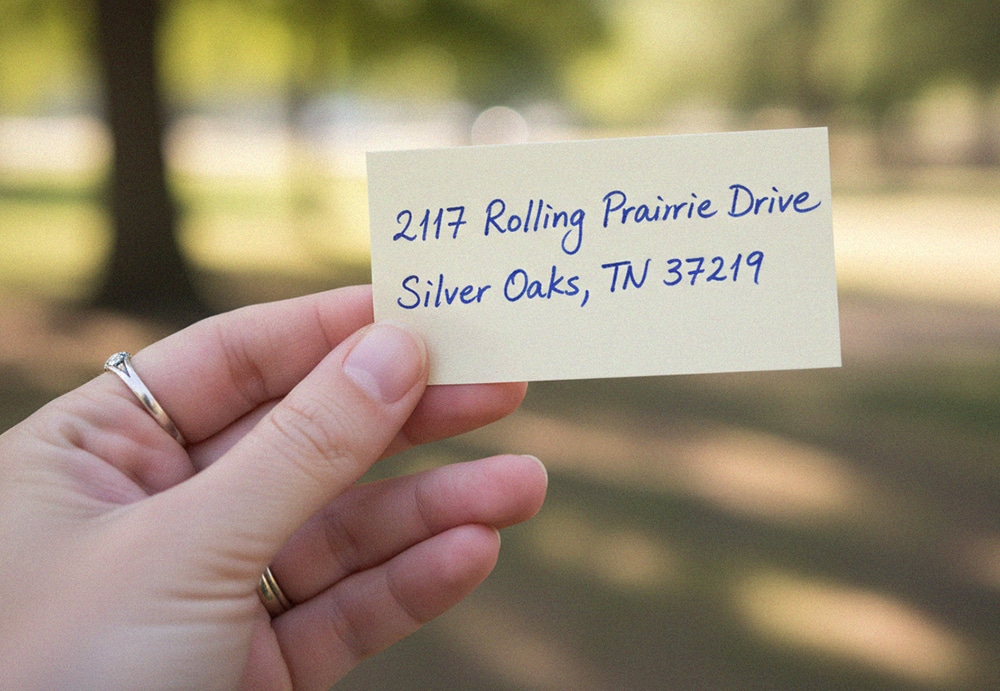 2117 Rolling Prairrie Drive
Silver Oaks, TN 37219